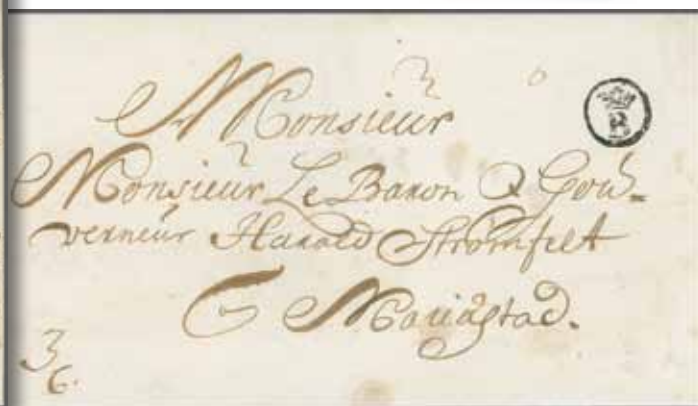 Monsieur
R
Monsieur Le Baron & Gou=
verneur Harald Strömfelt
à Mariæstad.
3
6.